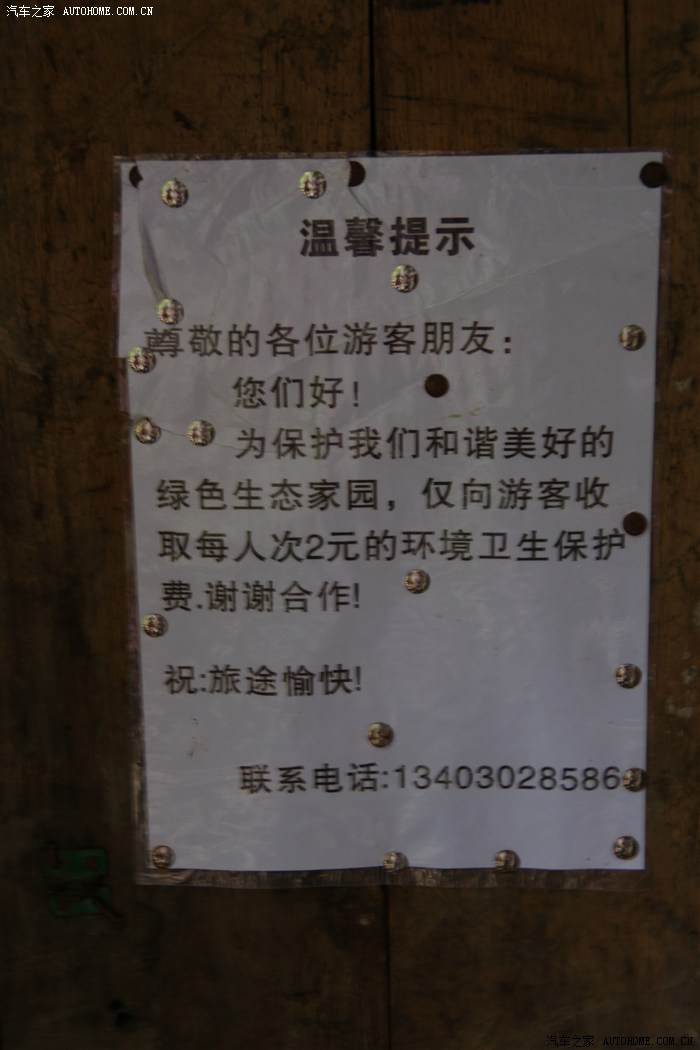 汽车之家 AUTOHOME.COM.CN
温馨提示
尊敬的各位游客朋友：
您们好！
为保护我们和谐美好的
绿色生态家园，仅向游客收
取每人次2元的环境卫生保护
费.谢谢合作!
祝:旅途愉快!
联系电话:13403028586
汽车之家 AUTOHOME.COM.CN